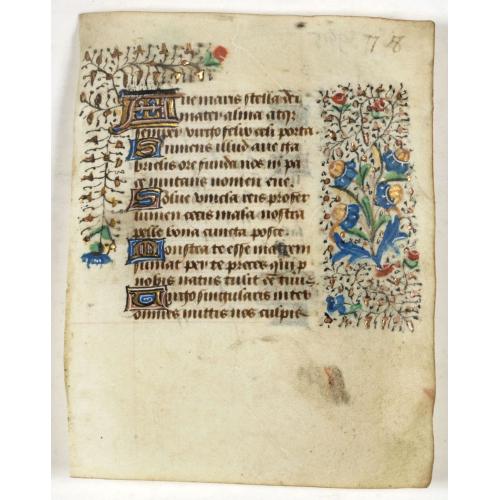 Aue maris stella dei
mater alma atqz
semper uirgo felix celi porta
Sumens illud aue ga
brielis ore funda nos in pa
ce mutans nomen eue.
Solue uincla reis profer
lumen cecis mala nostra
pelle bona cuncta posce.
Monstra te esse matrem
sumat per te preces qui p
nobis natus tulit esse tuus
Uirgo singularis inter
omnes mittis nos culpis